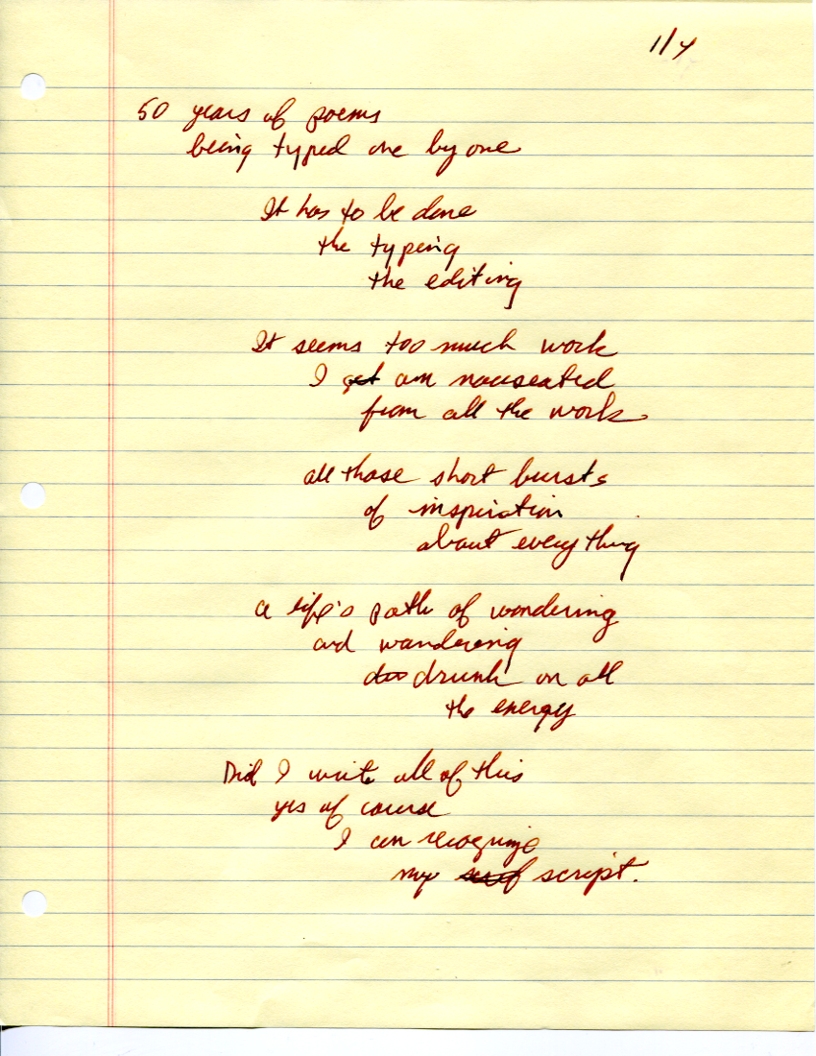 1/4
50 years of poems
being typed one by one
It has to be done
the typing
the editing
It seems too much work
I get am nauseated
from all the work
all those short bursts
of inspiration
about everything
a life's path of wondering
and wandering
drunk on all
the energy
Did I write all of this
yes of course
I can recognize
my script.